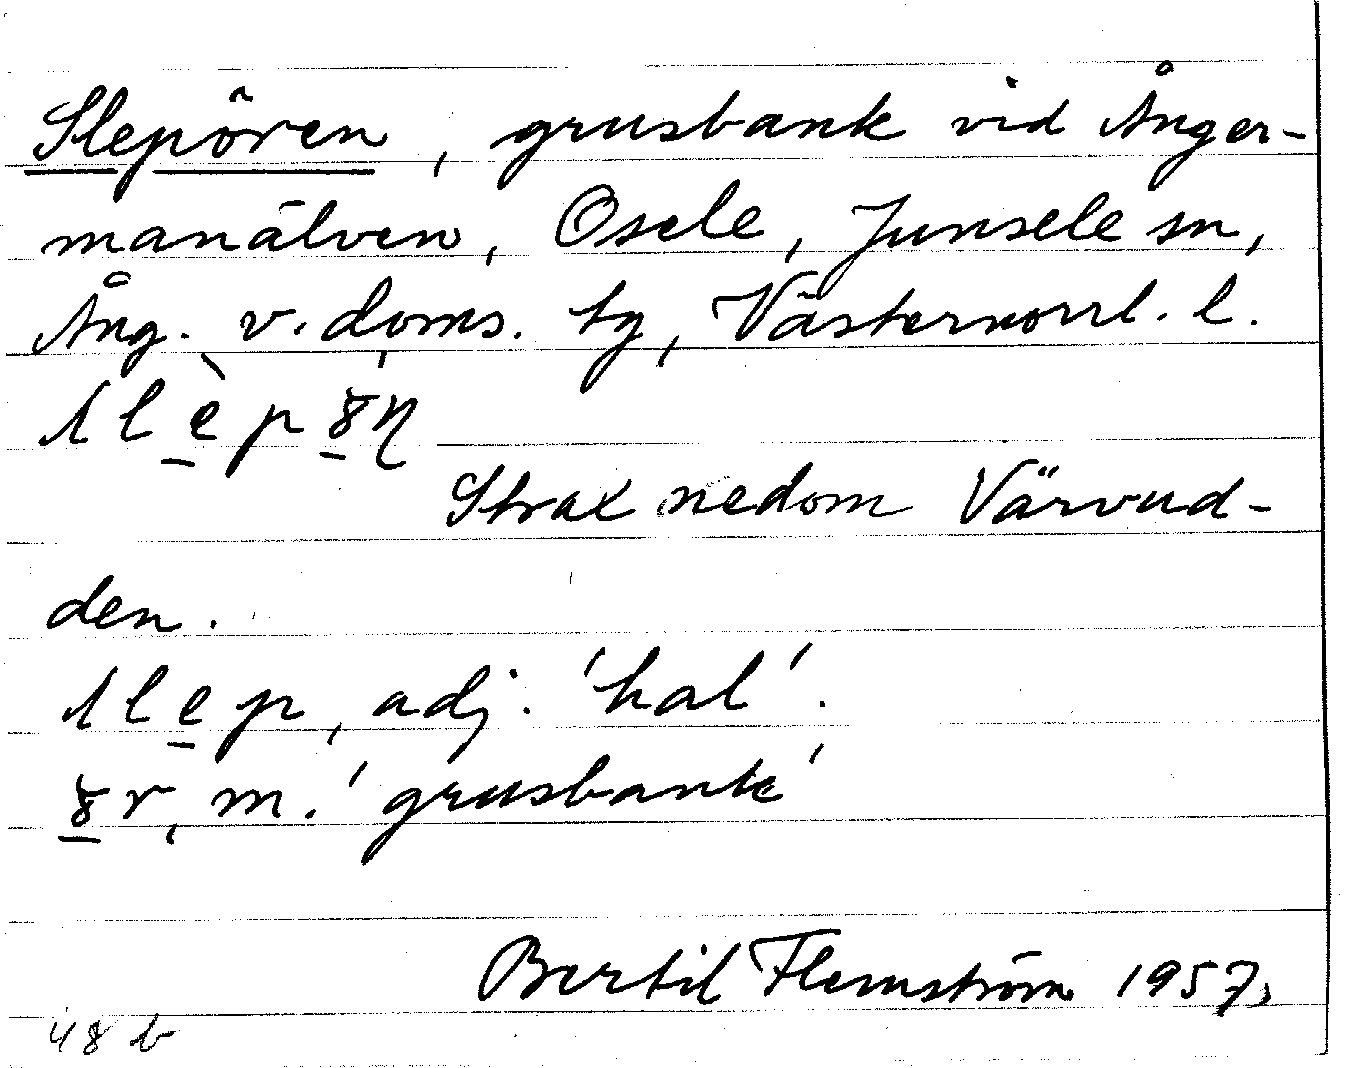 Slepören, grusbank vid Ånger-
manälven, Osele, Junsele sn,
Ång. v. doms. tg, Västernorrl. l.
Strax nedom Värvud-
den.
slep, adj. 'hal'.
m. 'grusbank'
Bertil Flemström 1957,
48 b